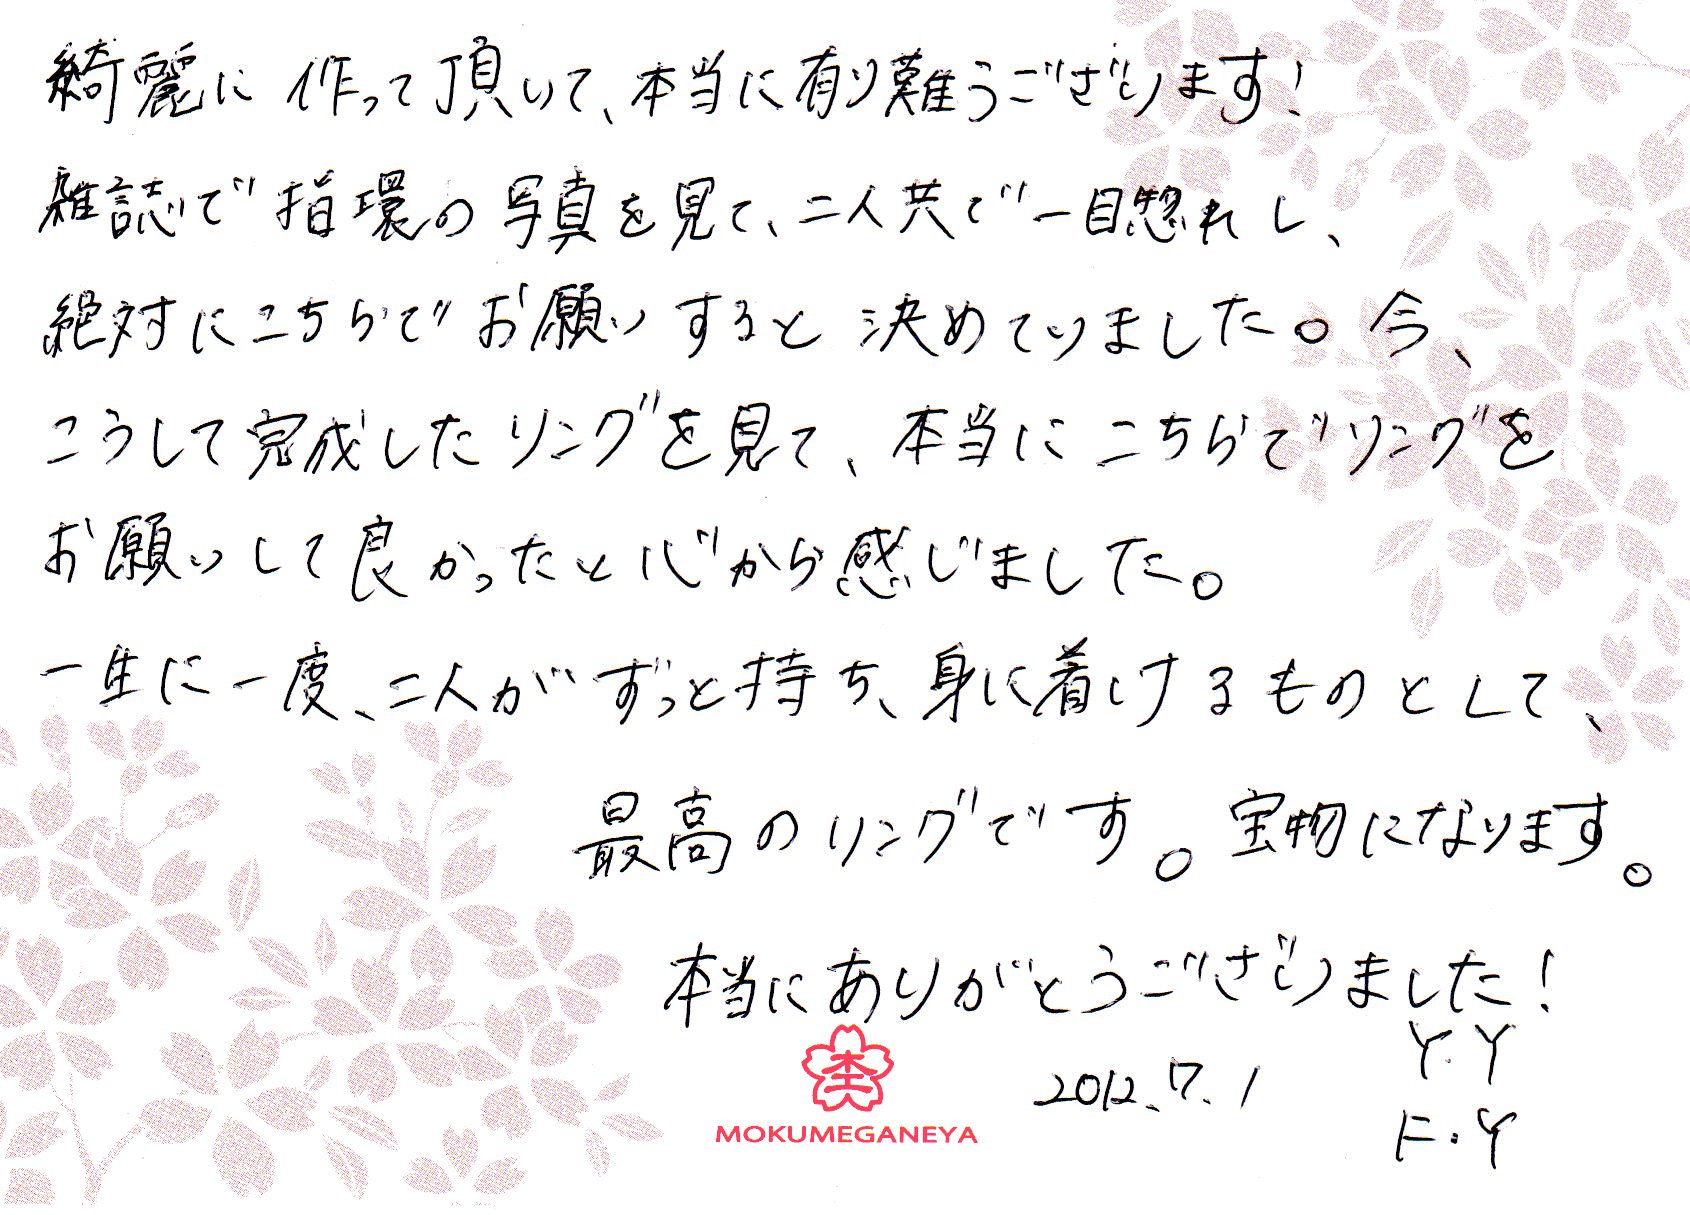 綺麗に作って頂いて、本当に有り難うございます！
雑誌で指環の写真を見て、二人共で一目惚れし、
絶対にこちらでお願いすると決めていました。今、
こうして完成したリングを見て、本当にこちらでリングを
お願いして良かったと心から感じました。
一生に一度、二人がずっと持ち、身に着けるものとして、
最高のリングです。宝物になります。
本当にありがとうございました！
2012.7.1
Y.Y
F.Y
MOKUMEGANEYA